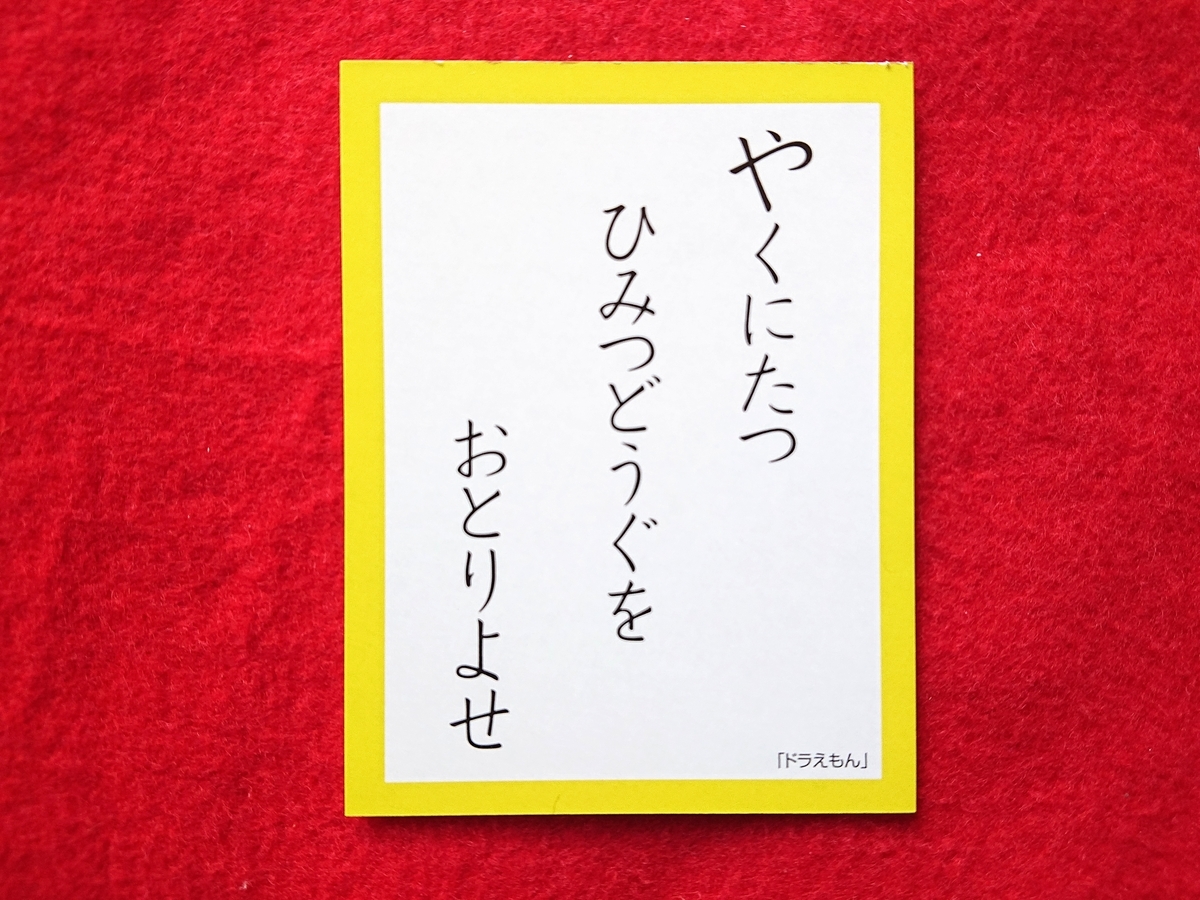 やくにたつ
ひみつどうぐを
おとりよせ
「ドラえもん」